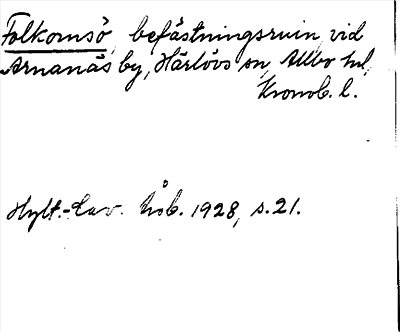 Folkomsö, befästningsruin vid
Arnanäs by, Härlövs sn, Allbo hd,
Kronob. l.
Hylt.-Cav. Årsb. 1928, s. 21.